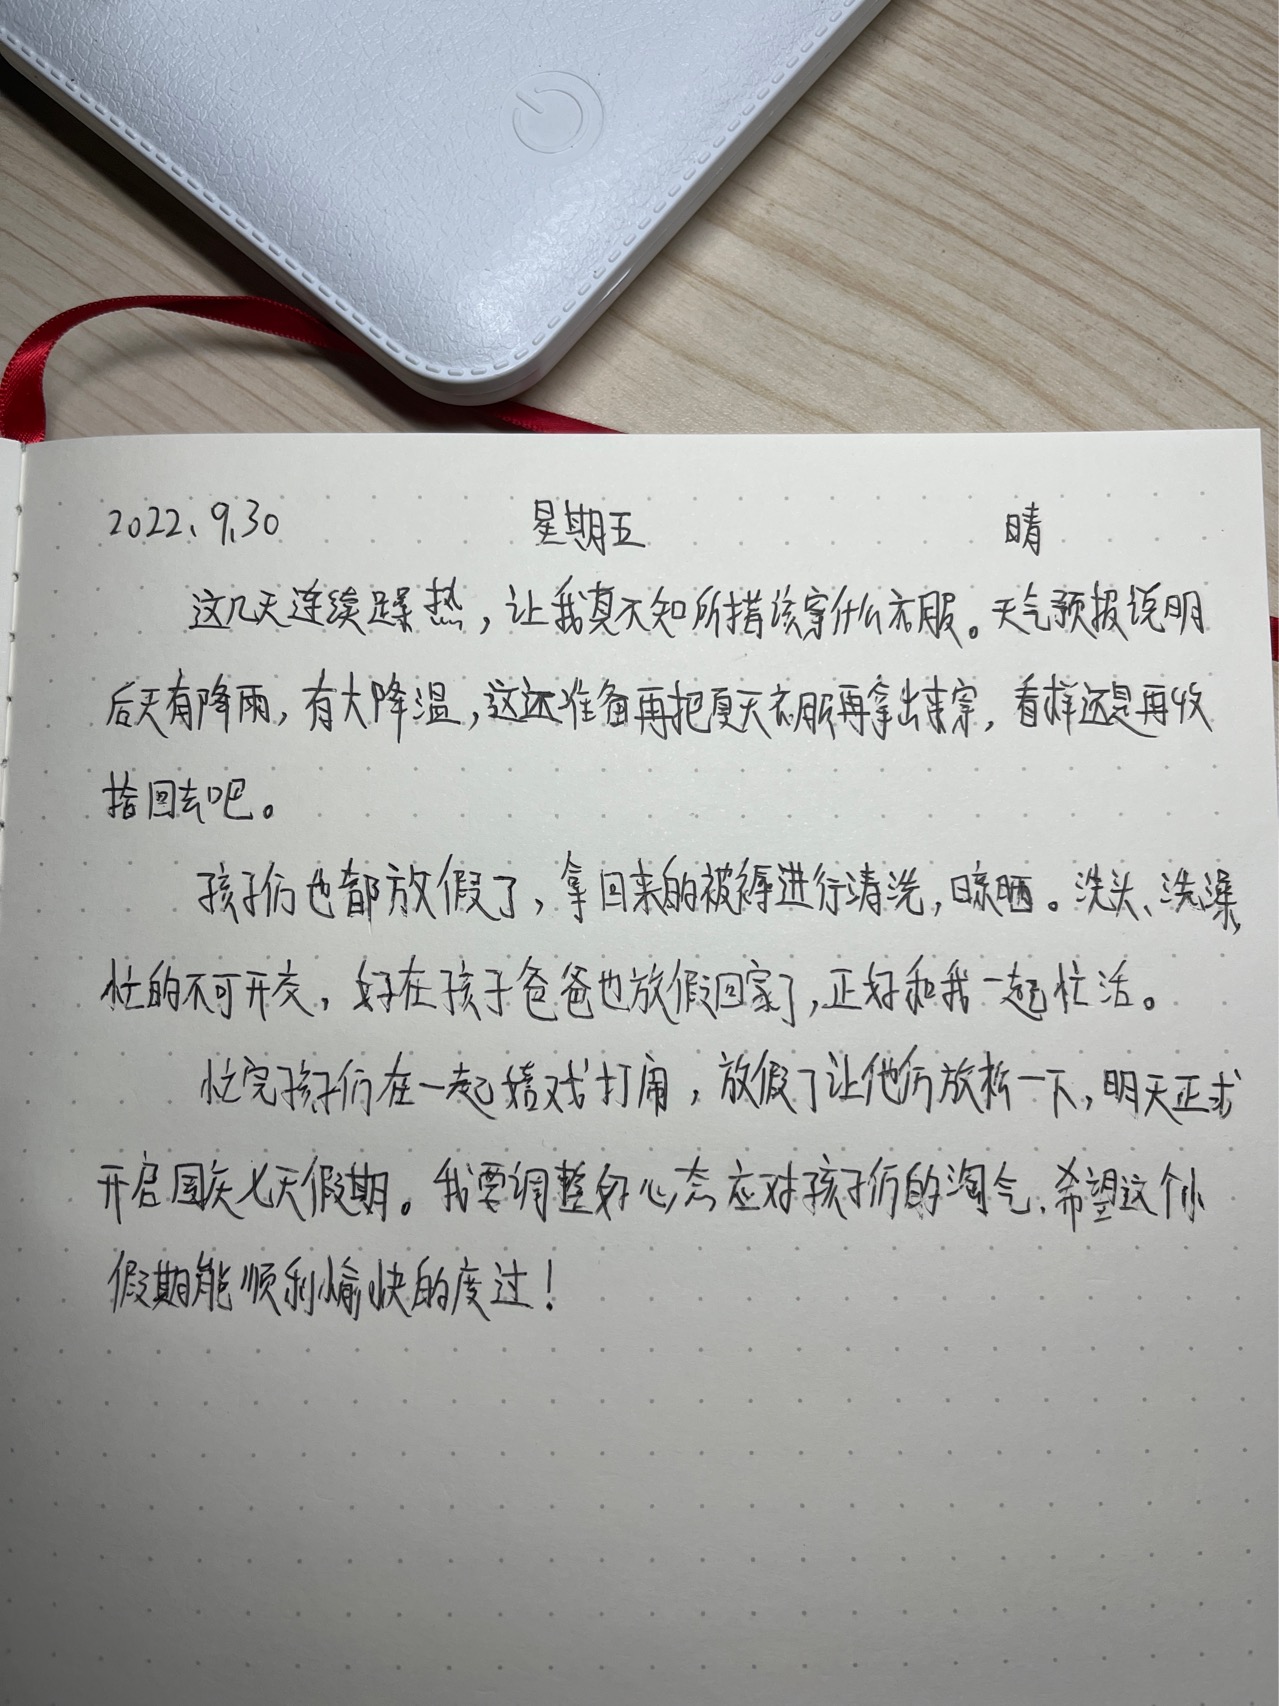 2022、9、30 星期五 晴
这几天连续躁热，让我真不知所措该穿什么衣服。天气预报说明
后天有降雨，有大降温，这还准备再把夏天衣服再拿出来穿，看样还是再收
拾回去吧。
孩子们也都放假了，拿回来的被褥进行清洗，晾晒。洗头、洗澡，
忙的不可开交，好在孩子爸爸也放假回家了，正好和我一起忙活。
忙完孩子们在一起嬉戏打闹，放假了让他们放松一下，明天正式
开启国庆七天假期。我要调整好心态应对孩子们的淘气、希望这个小
假期能顺利愉快的度过！